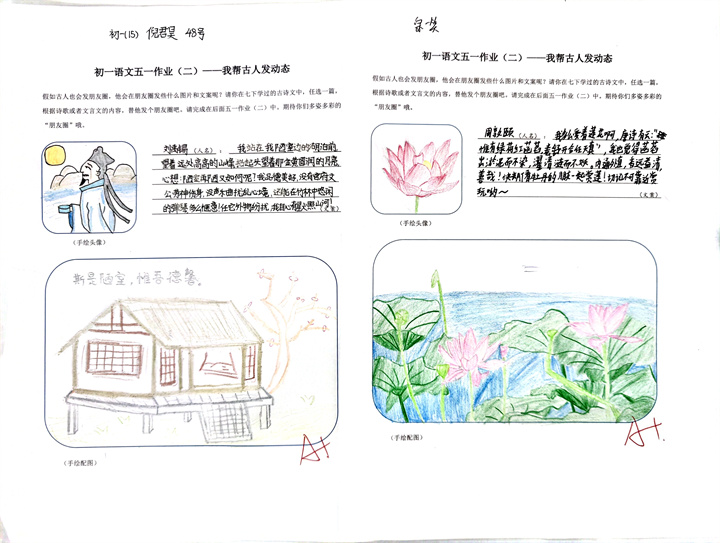 初一(15) 倪君昊 48号
初一语文五一作业（二）——我帮古人发动态
假如古人也会发朋友圈，他会在朋友圈发些什么图片和文案呢？请你在七下学过的古诗文中，任选一篇，
根据诗歌或者文言文的内容，替他发个朋友圈吧。请完成在后面五一作业（二）中，期待你们多姿多彩的
“朋友圈”哦。
刘禹锡（人名）：我站在我陋室边的湖泊前，
望着远处高高的山峰，抬起头望着那金黄圆润的月亮
心想：陋室再陋又如何呢？我品德美好，没有官府文
公劳神伤身，没声木曲扰乱心境，还能在竹林中悠闲
的弹琴，多么惬意！任它外物纷扰，我自心有明火照山河！
（文案）
（手绘头像）
斯是陋室，惟吾德馨。
（手绘配图）
A+
初一语文五一作业（二）——我帮古人发动态
假如古人也会发朋友圈，他会在朋友圈发些什么图片和文案呢？请你在七下学过的古诗文中，任选一篇，
根据诗歌或者文言文的内容，替他发个朋友圈吧。请完成在后面五一作业（二）中，期待你们多姿多彩的
“朋友圈”哦。
周敦颐（人名）：我那么爱着莲花啊，唐诗有云：“
惟有绿荷红菡萏，卷舒开合任天真”，我也觉得菡萏
出淤泥而不染，濯清涟而不妖，中通外直，香远益清，
善哉！快和我一起赏莲！切记不可靠近赏
玩哟～
（文案）
（手绘头像）
（手绘配图）
A+